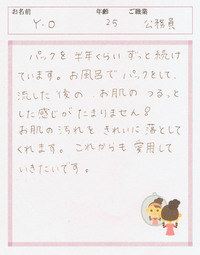 お名前 年齢 ご職業
Y・O 25 公務員
パックを半年くらいずっと続け
ています。お風呂でパックをして、
流した後のお肌のつるっと
した感じがたまりません♪
お肌の汚れをきれいに落として
くれます。これからも愛用して
いきたいです。